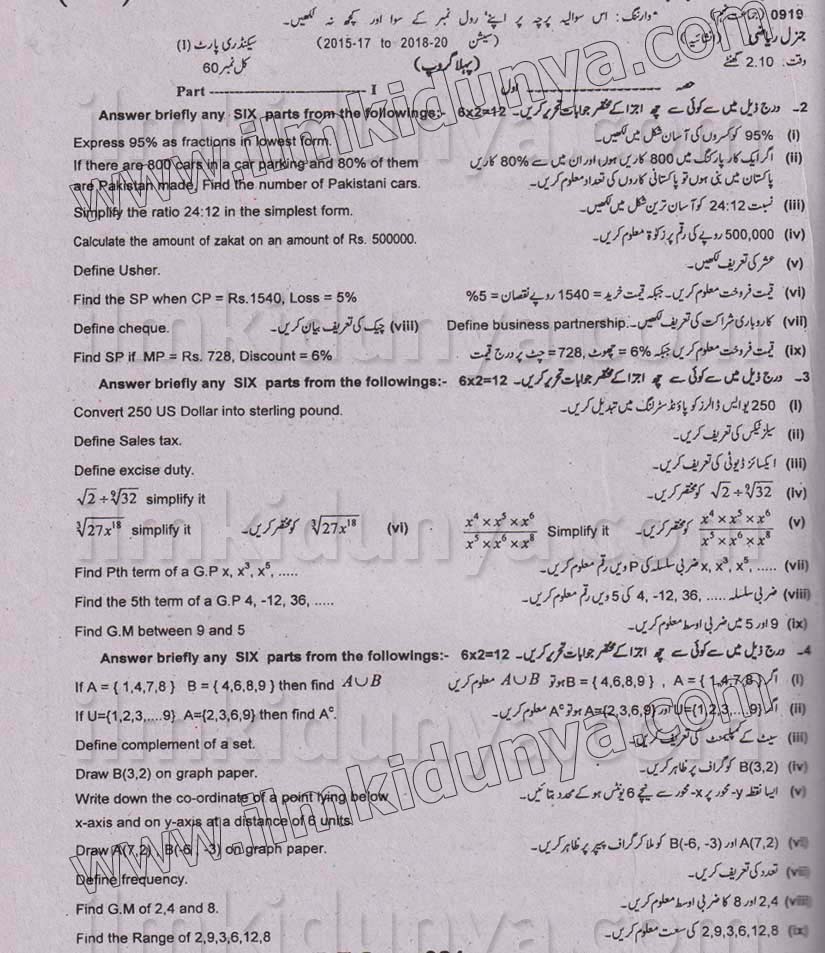 0919 (جماعت نہم) وارننگ: اس سوالیہ پرچہ پر اپنے رول نمبر کے سوا اور کچھ نہ لکھیں۔
جنرل ریاضی (انشائیہ) (سیشن 2015-17 to 2018-20) سیکنڈری پارٹ (I)
وقت: 2.10 گھنٹے (پہلا گروپ) کل نمبر 60
حصہ ---------- اول Part ---------- I
Answer briefly any SIX parts from the followings:- 6x2=12 2۔ درج ذیل میں سے کوئی سے چھ اجزا کے مختصر جوابات تحریر کریں۔
Express 95% as fractions in lowest form. (i) 95% کو کسروں کی آسان شکل میں لکھیں۔
If there are 800 cars in a car parking and 80% of them (ii) اگر ایک کار پارکنگ میں 800 کاریں ہوں اور ان میں سے 80% کاریں
are Pakistan made, Find the number of Pakistani cars. پاکستان میں بنی ہوں تو پاکستانی کاروں کی تعداد معلوم کریں۔
Simplify the ratio 24:12 in the simplest form. (iii) نسبت 24:12 کو آسان ترین شکل میں لکھیں۔
Calculate the amount of zakat on an amount of Rs. 500000. (iv) 500,000 روپے کی رقم پر زکوٰۃ معلوم کریں۔
Define Usher. (v) عشر کی تعریف لکھیں۔
Find the SP when CP = Rs.1540, Loss = 5% (vi) قیمت فروخت معلوم کریں۔ جبکہ قیمت خرید = 1540 روپے نقصان = 5%
Define cheque. (viii) چیک کی تعریف بیان کریں۔ Define business partnership. (vii) کاروباری شراکت کی تعریف لکھیں۔
Find SP if MP = Rs. 728, Discount = 6% (ix) قیمت فروخت معلوم کریں جبکہ 6% = چھوٹ ,728 = چٹ پر درج قیمت
Answer briefly any SIX parts from the followings:- 6x2=12 3۔ درج ذیل میں سے کوئی سے چھ اجزا کے مختصر جوابات تحریر کریں۔
Convert 250 US Dollar into sterling pound. (I) 250 یو ایس ڈالرز کو پاؤنڈ سٹرلنگ میں تبدیل کریں۔
Define Sales tax. (ii) سیلز ٹیکس کی تعریف کریں۔
Define excise duty. (iii) ایکسائز ڈیوٹی کی تعریف کریں۔
√2 ÷ ⁹√32 simplify it (iv) √2 ÷ ⁹√32 کو مختصر کریں۔
∛(27x¹⁸) simplify it (vi) ∛(27x¹⁸) کو مختصر کریں۔ (x⁴ × x⁵ × x⁶)/(x⁵ × x⁶ × x⁸) Simplify it (v) (x⁴ × x⁵ × x⁶)/(x⁵ × x⁶ × x⁸) کو مختصر کریں۔
Find Pth term of a G.P x, x³, x⁵, ..... (vii) x, x³, x⁵, ..... ضربی سلسلہ کی P ویں رقم معلوم کریں۔
Find the 5th term of a G.P 4, -12, 36, ..... (viii) ضربی سلسلہ 4, -12, 36, ..... کی 5 ویں رقم معلوم کریں۔
Find G.M between 9 and 5 (ix) 9 اور 5 میں ضربی اوسط معلوم کریں۔
Answer briefly any SIX parts from the followings:- 6x2=12 4۔ درج ذیل میں سے کوئی سے چھ اجزا کے مختصر جوابات تحریر کریں۔
If A = { 1,4,7,8 } B = { 4,6,8,9 } then find A∪B (i) اگر A = { 1,4,7,8 } , B = { 4,6,8,9 } ہو تو A∪B معلوم کریں
If U={1,2,3,....9} A={2,3,6,9} then find Aᶜ. (ii) اگر U={1,2,3,....9} اور A={2,3,6,9} ہو تو Aᶜ معلوم کریں۔
Define complement of a set. (iii) سیٹ کے کمپلیمنٹ کی تعریف کریں۔
Draw B(3,2) on graph paper. (iv) B(3,2) کو گراف پر ظاہر کریں۔
Write down the co-ordinate of a point lying below (v) ایسا نقطہ y-محور پر x-محور سے نیچے 6 یونٹس ہو کے محدد بتائیں۔
x-axis and on y-axis at a distance of 6 units.
Draw A(7,2) , B(-6, -3) on graph paper. (vi) A(7,2) اور B(-6, -3) کو ملا کر گراف پیپر پر ظاہر کریں۔
Define frequency. (vii) تعدد کی تعریف کریں۔
Find G.M of 2,4 and 8. (viii) 2,4 اور 8 کا ضربی اوسط معلوم کریں۔
Find the Range of 2,9,3,6,12,8 (ix) 2,9,3,6,12,8 کی سعت معلوم کریں۔
www.ilmkidunya.com
www.ilmkidunya.com
ilmkidunya.com
ilmkidunya.com
ilmkidunya.com
ilmkidunya.com